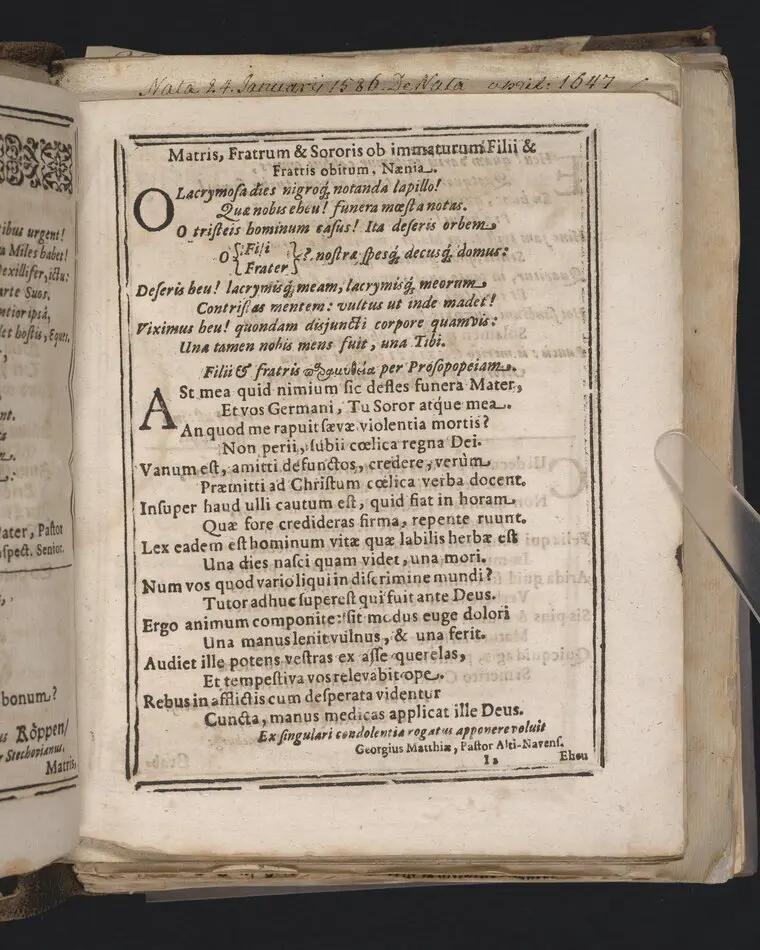 Nata 24. Januarii 1586. DeNata april: 1647
ibus urgent!
a Miles habet!
exillifer, ictu:
arte Suos.
ntior ipsâ,
et hostis, Eques,
nt.
ater, Pastor
spect. Senior.
bonum?
us Röppen/
r Stechovianus.
Matris,
Matris, Fratrum & Sororis ob immaturum Filii &
Fratris obitum, Nænia.
O Lacrymosa dies nigroq; notanda lapillo!
Quæ nobis eheu! funera mœsta notas.
O tristeis hominum casus! Ita deseris orbem,
O {Fili
Frater} ? nostræ spesq; decusq; domus:
Deseris heu! lacrymisq; meam, lacrymisq; meorum
Contristas mentem: vultus ut inde madet!
Viximus heu! quondam disjuncti corpore quamvis:
Una tamen nobis mens fuit, una Tibi.
Filii & fratris per Prosopopeiam.
ASt mea quid nimium sic defles funera Mater,
Et vos Germani, Tu Soror atque mea.
An quod me rapuit sævæ violentia mortis?
Non perii, subii cœlica regna Dei.
Vanum est, amitti defunctos, credere, verùm
Præmitti ad Christum cœlica verba docent.
Insuper haud ulli cautum est, quid fiat in horam,
Quæ fore credideras firma, repente ruunt.
Lex eadem est hominum vitæ quæ labilis herbæ est
Una dies nasci quam videt, una mori.
Num vos quod vario liqui in discrimine mundi?
Tutor adhuc superest qui fuit ante Deus.
Ergo animum componite: sit modus euge dolori
Una manus lenit vulnus, & una ferit.
Audiet ille potens vestras ex asse querelas,
Et tempestiva vos relevabit ope.
Rebus in afflictis cum desperata videntur
Cuncta, manus medicas applicat ille Deus.
Ex singulari condolentia rogatus apponere voluit
Georgius Matthiæ, Pastor Alti-Navens.
I 2 Eheu